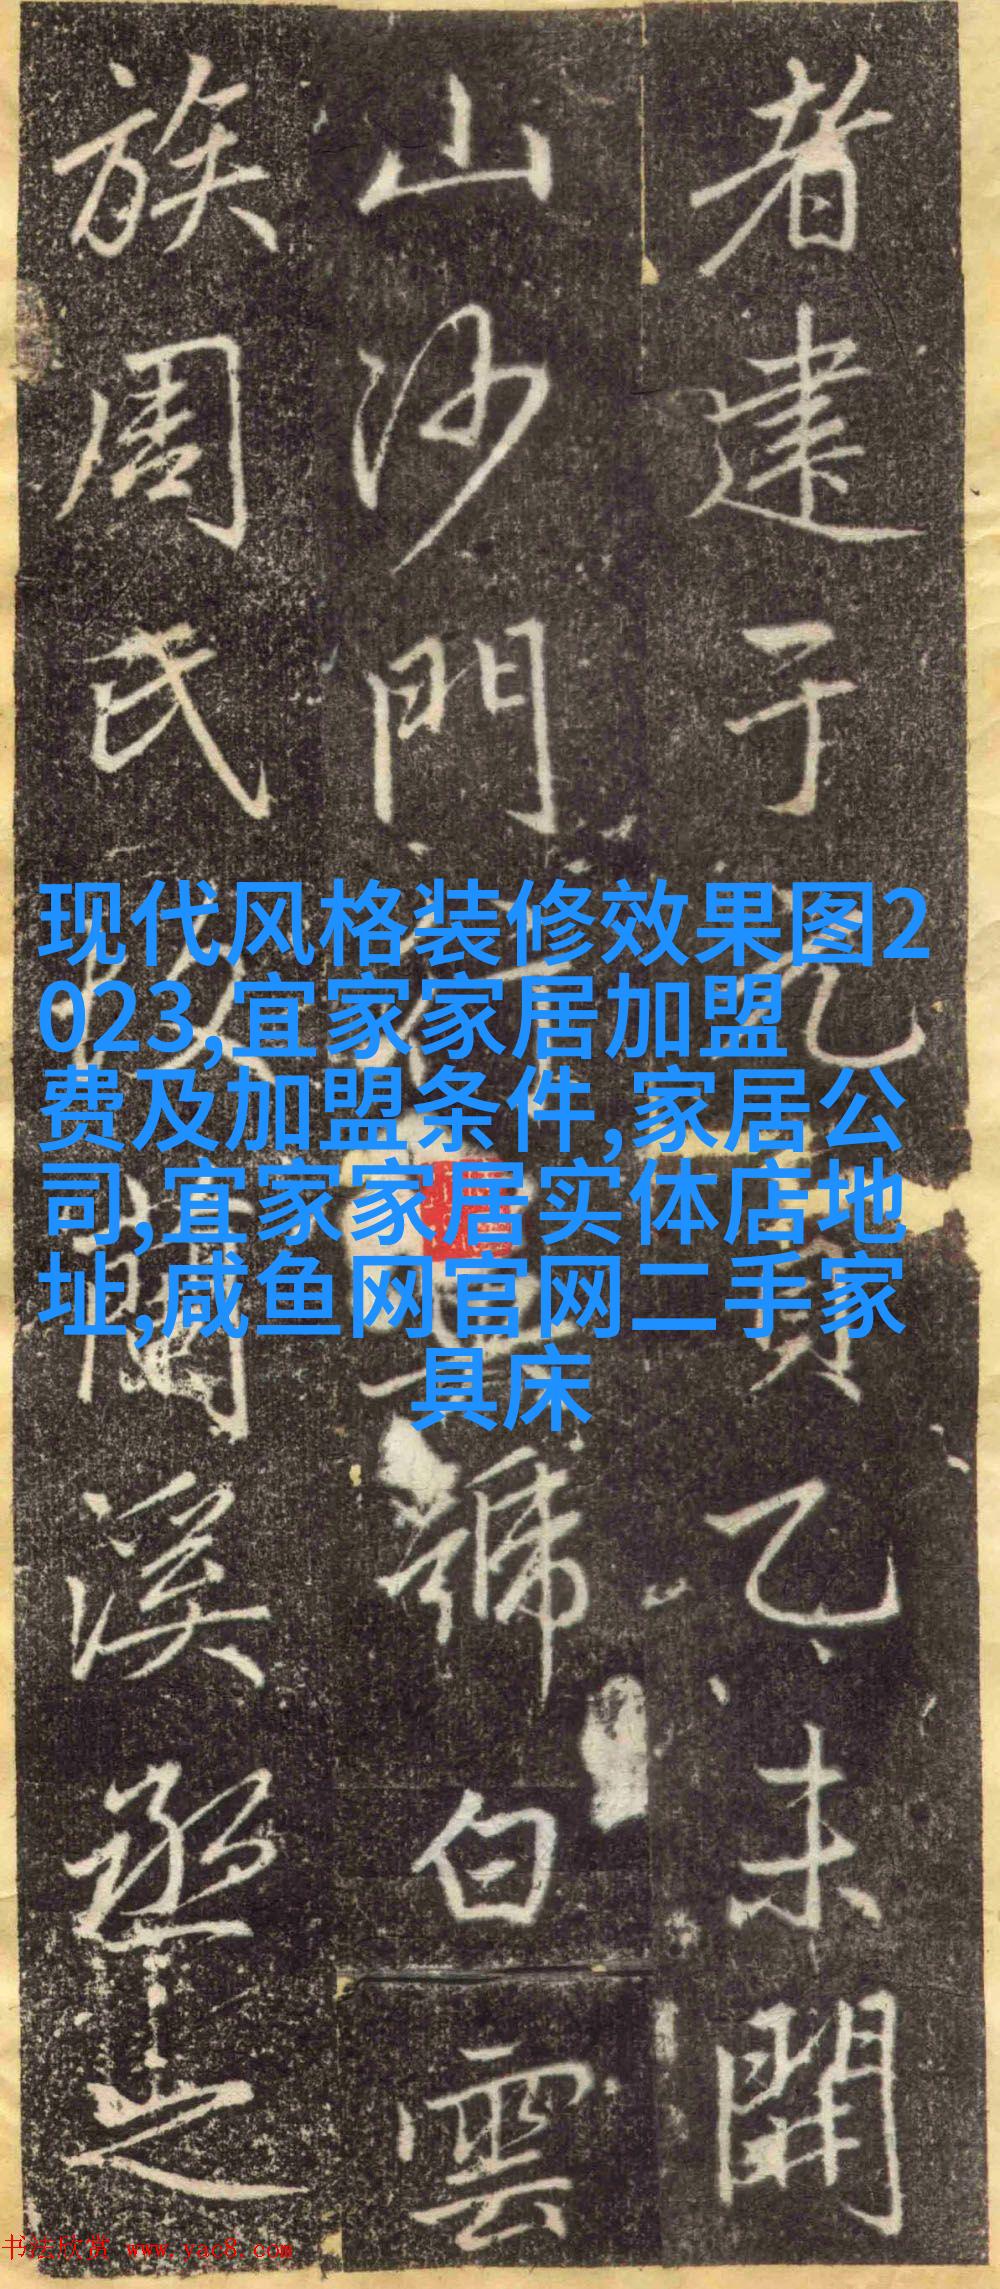 者建于元貞乙未開
山沙門號白雲
族周氏蘭溪丞之
现代风格装修效果图2
023,宜家家居加盟
费及加盟条件,家居公
司,宜家家居实体店地
址,咸鱼网官网二手家
具床
书法欣赏 www.yac8.com